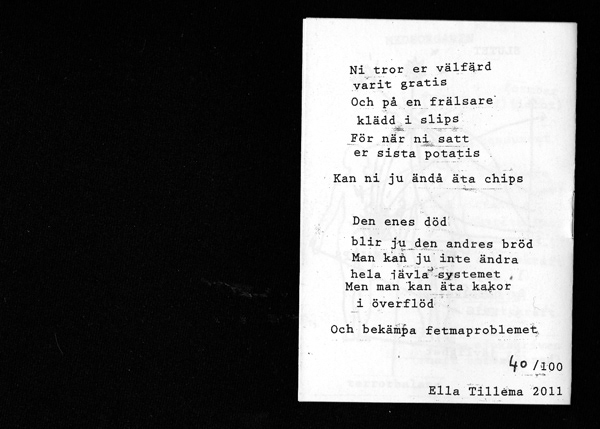 Ni tror er välfärd
varit gratis
Och på en frälsare
klädd i slips
För när ni satt
er sista potatis
Kan ni ju ändå äta chips
Den enes död
blir ju den andres bröd
Man kan ju inte ändra
hela jävla systemet
Men man kan äta kakor
i överflöd
Och bekämpa fetmaproblemet
40/100
Ella Tillema 2011